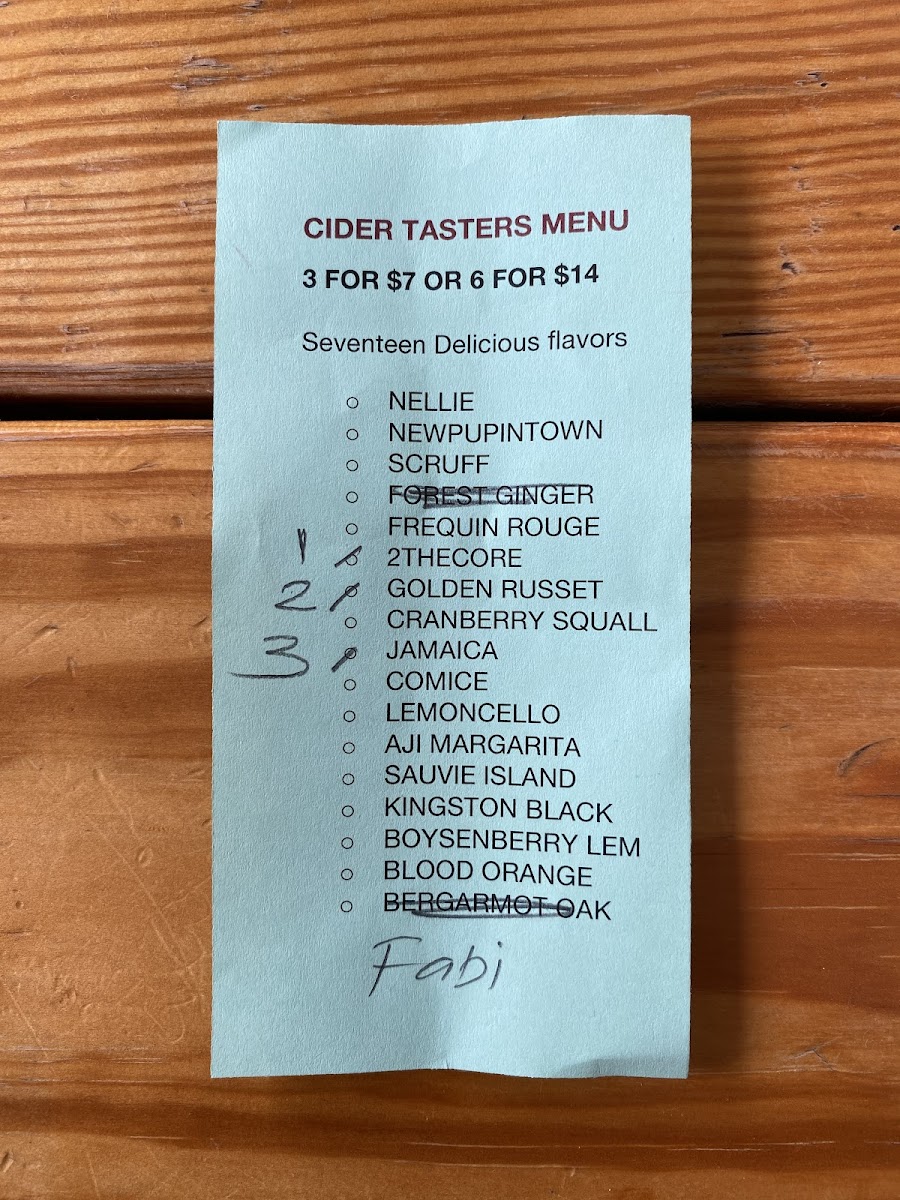 CIDER TASTERS MENU
3 FOR $7 OR 6 FOR $14
Seventeen Delicious flavors
NELLIE
NEWPUPINTOWN
SCRUFF
FOREST GINGER
FREQUIN ROUGE
1 2THECORE
2 GOLDEN RUSSET
CRANBERRY SQUALL
3 JAMAICA
COMICE
LEMONCELLO
AJI MARGARITA
SAUVIE ISLAND
KINGSTON BLACK
BOYSENBERRY LEM
BLOOD ORANGE
BERGARMOT OAK
Fabi